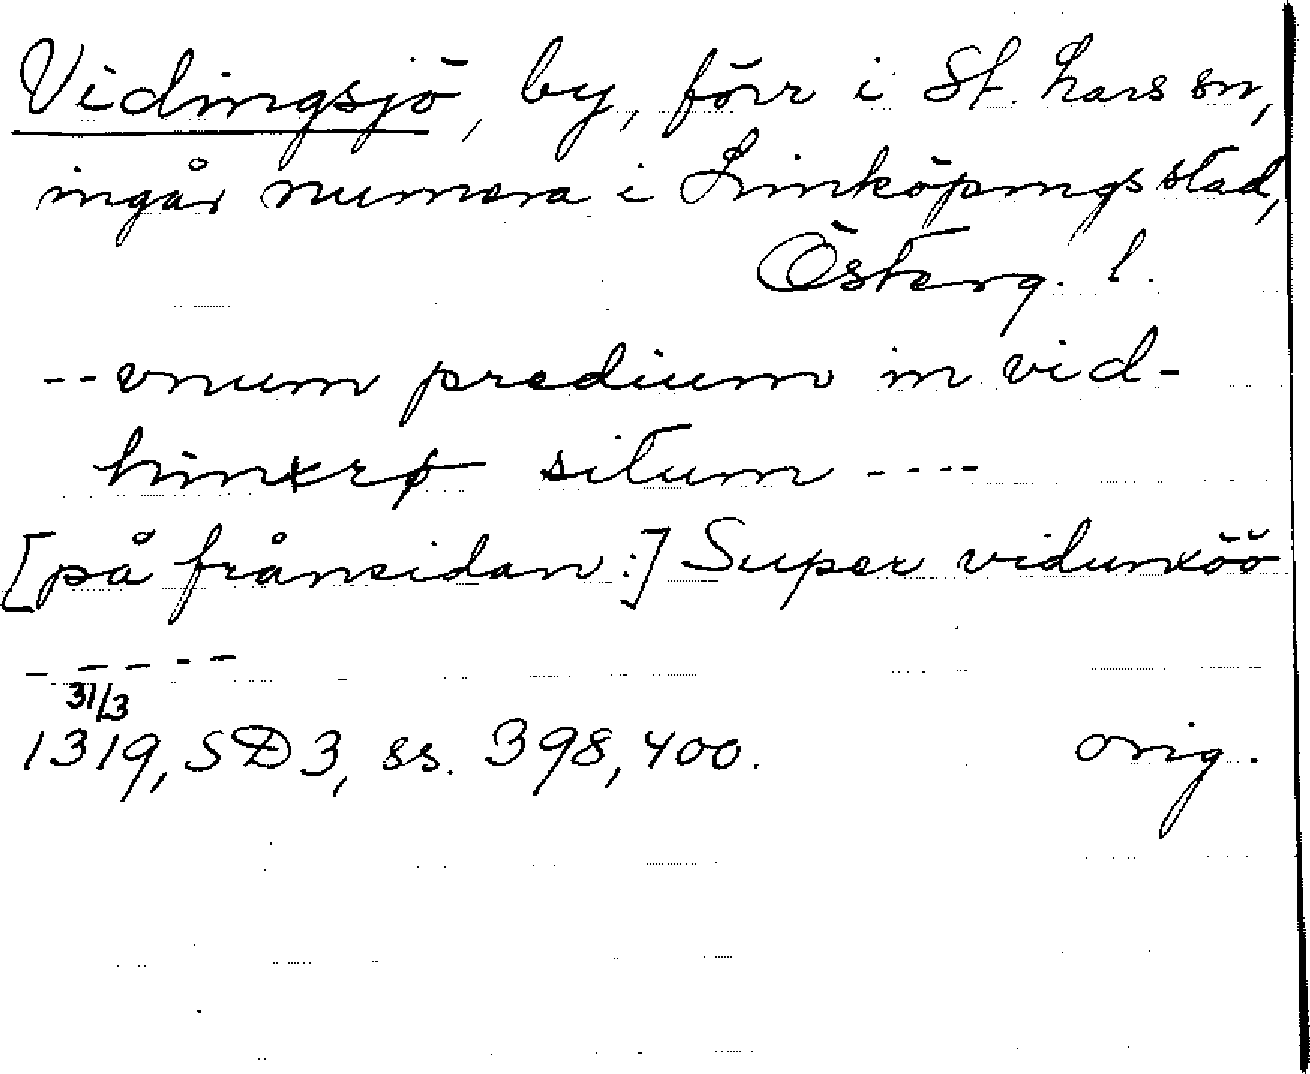 Vidingsjö, by, förr i St. Lars sn,
ingår numera i Linköpings stad,
Österg. l.
-- vnum predium in vid-
hinxrø situm ----
[på frånsidan:] Super vidunxöö
-----
31/3
1319, SD 3, ss. 398, 400. orig.